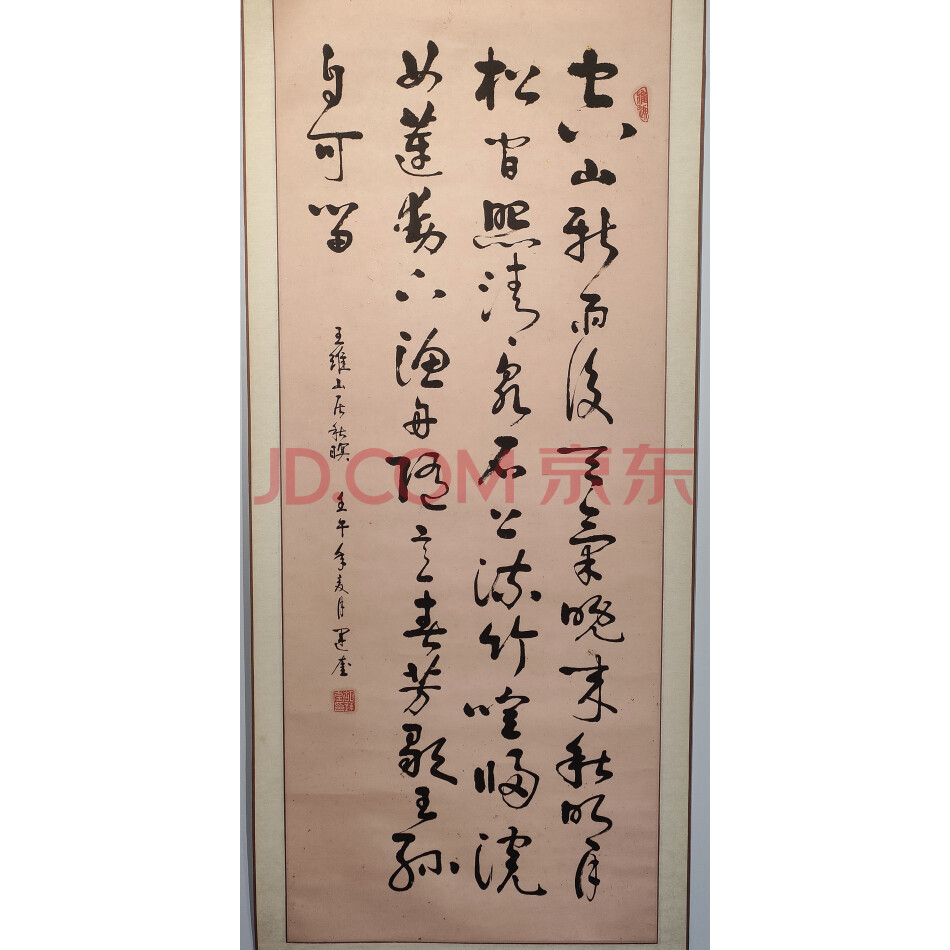 空山新雨後天氣晚來秋明月
松間照清泉石上流竹喧歸浣
女蓮動下漁舟隨意春芳歇王孫
自可留
王維山居秋暝 壬午年夏月 奎
JD.COM 京东